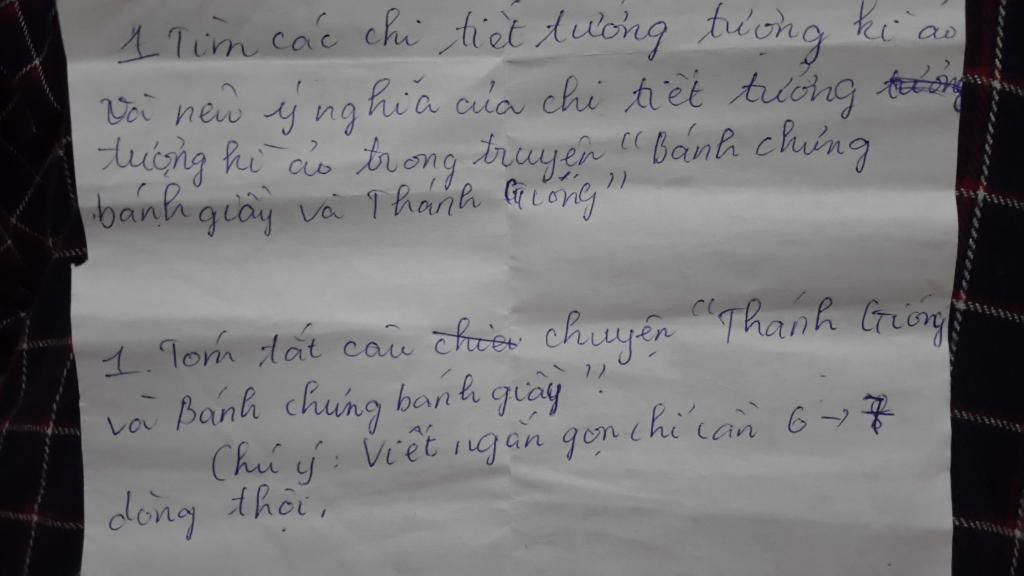 1 Tìm các chi tiết tưởng tượng kì ảo
và nêu ý nghĩa của chi tiết tưởng tưởng
tượng kì ảo trong truyện "Bánh chưng
bánh giầy và Thánh Gióng"
1. Tóm tắt câu chuyện "Thánh Gióng
và Bánh chưng bánh giầy"?
Chú ý: Viết ngắn gọn chỉ cần 6 → 7
dòng thôi.